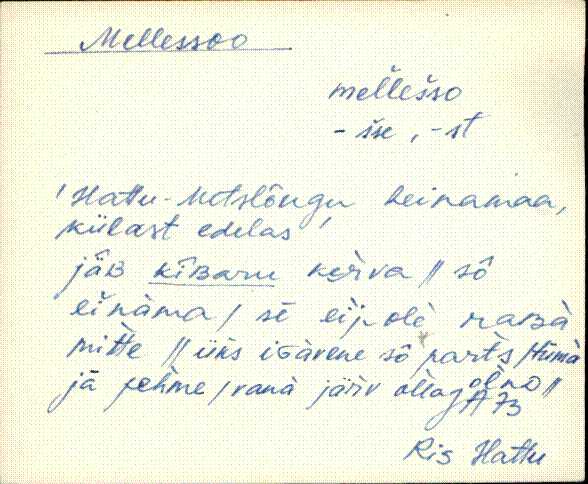 Mellessoo
mellešso
- šse, -st
' Hattu-Metslõugu heinamaa,
külast edelas '
jäв kiʙaru kerva // sô
einäma / se eipole raʙa
mitte // üks igavene sô parts / tüma
ja pehme / vana järv ollag olno //
A 73
Ris Hattu